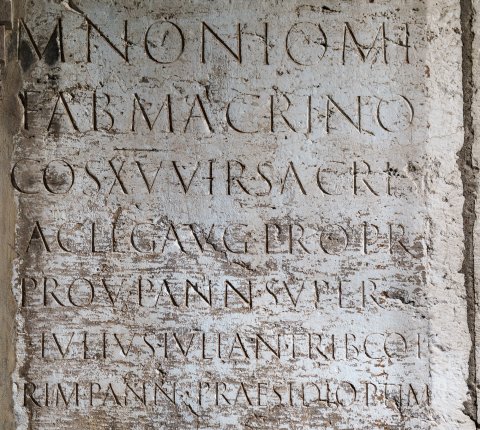 M NONIO M F
FAB MACRINO
COS XV VIR SACR F
AC LEG AVG PRO PR
PROV PANN SVPER
IVLIVS IVLIAN TRIB COH
PRIM PANN PRAESIDI OPTIM